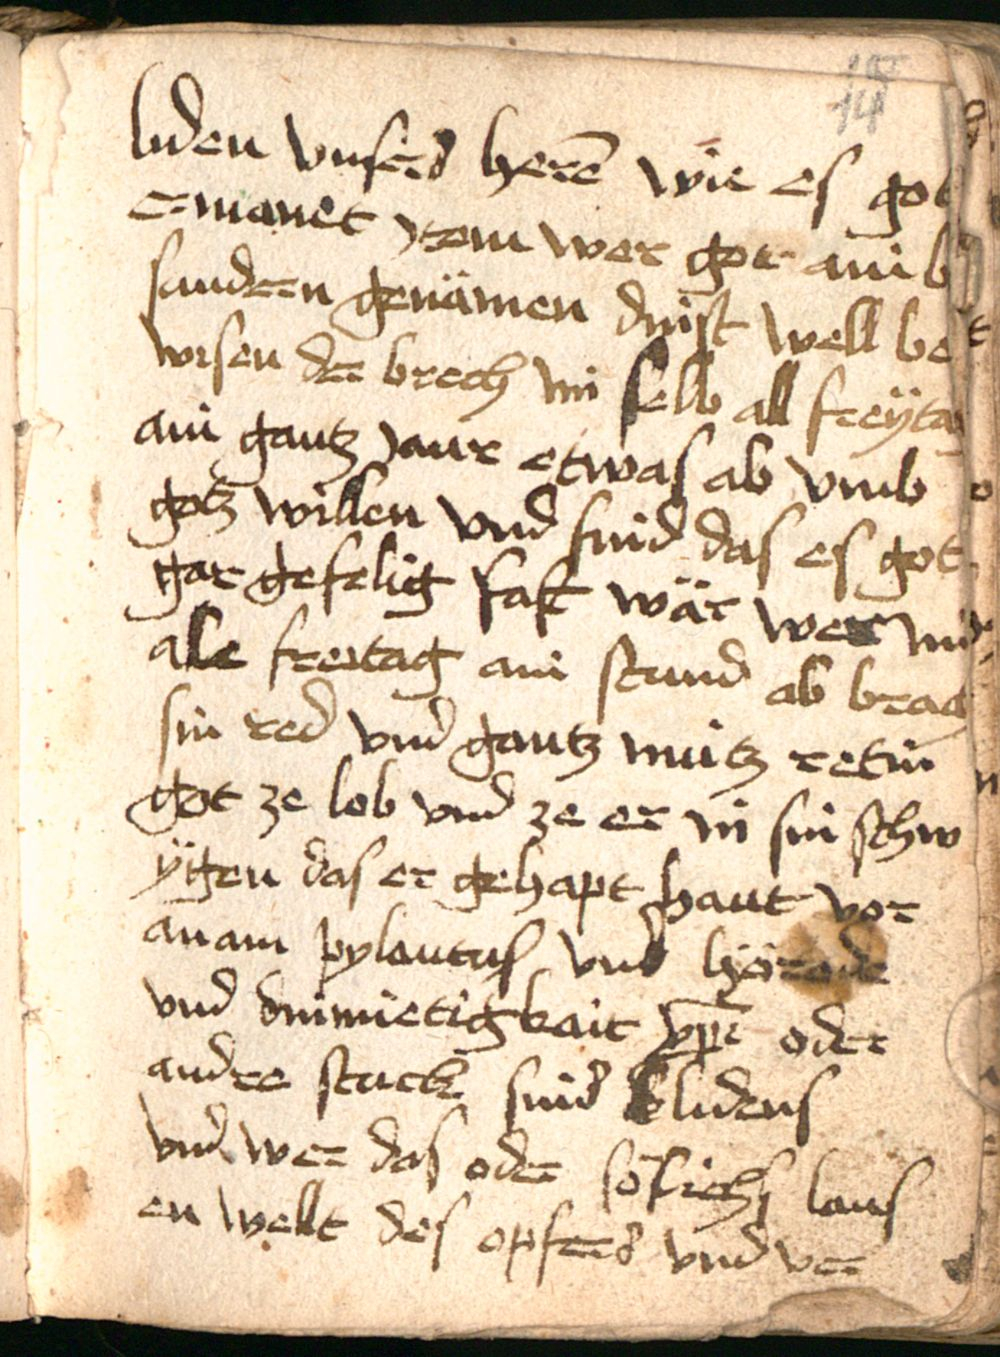 14
liden vnsers herē wie es got
ermanet ytem wer got ain b
sundern genämen dinst well be
wisen der brech im selb all freÿta
ain gantz jaur etwas ab vmb
gotz willen vnd sind das es got
gar gefelig fast wär wer im
ale freitag ain stund ab brach
sin red vnd gantz nütz retin
got ze lob vnd ze er in sin schw
ÿgen das er gehapt haut vor
anam pylautus vnd
vnd diemietigkait xp̄i oder
andre stuck sind lidens
vnd wer das oder sölichs laus
en welt des opfers vnd ver